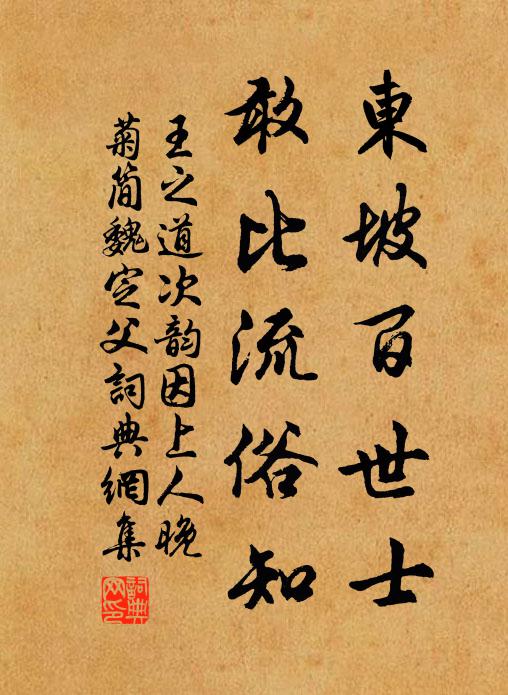 東坡百世士
敢比流俗知
王之道次韵因上人晚
菊簡魏定父詞典網集
詞典网印